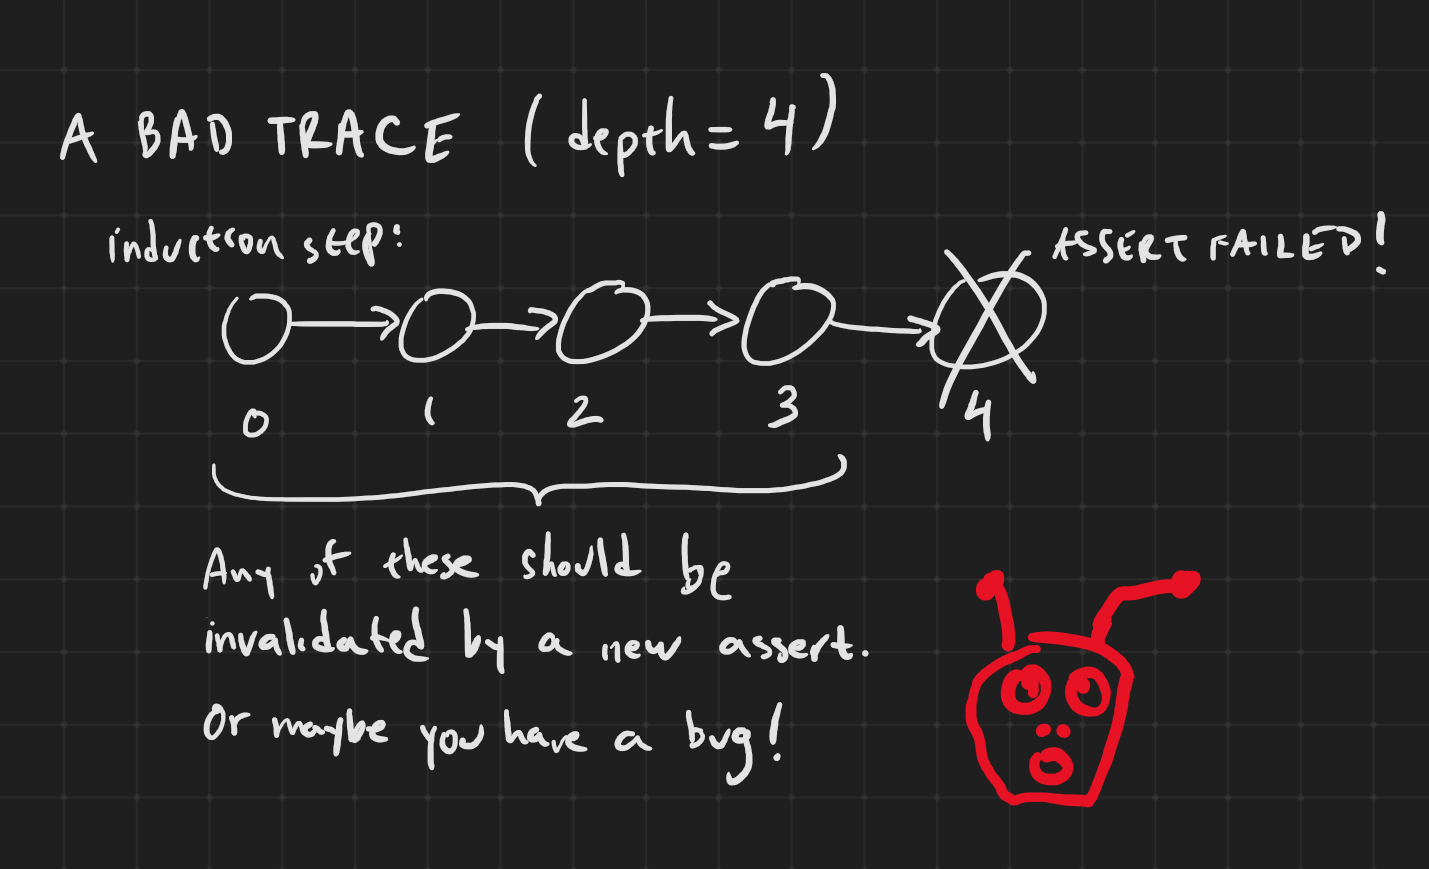 A BAD TRACE (depth = 4)
induction step:
ASSERT FAILED!
0 1 2 3 4
Any of these should be
invalidated by a new assert.
Or maybe you have a bug!